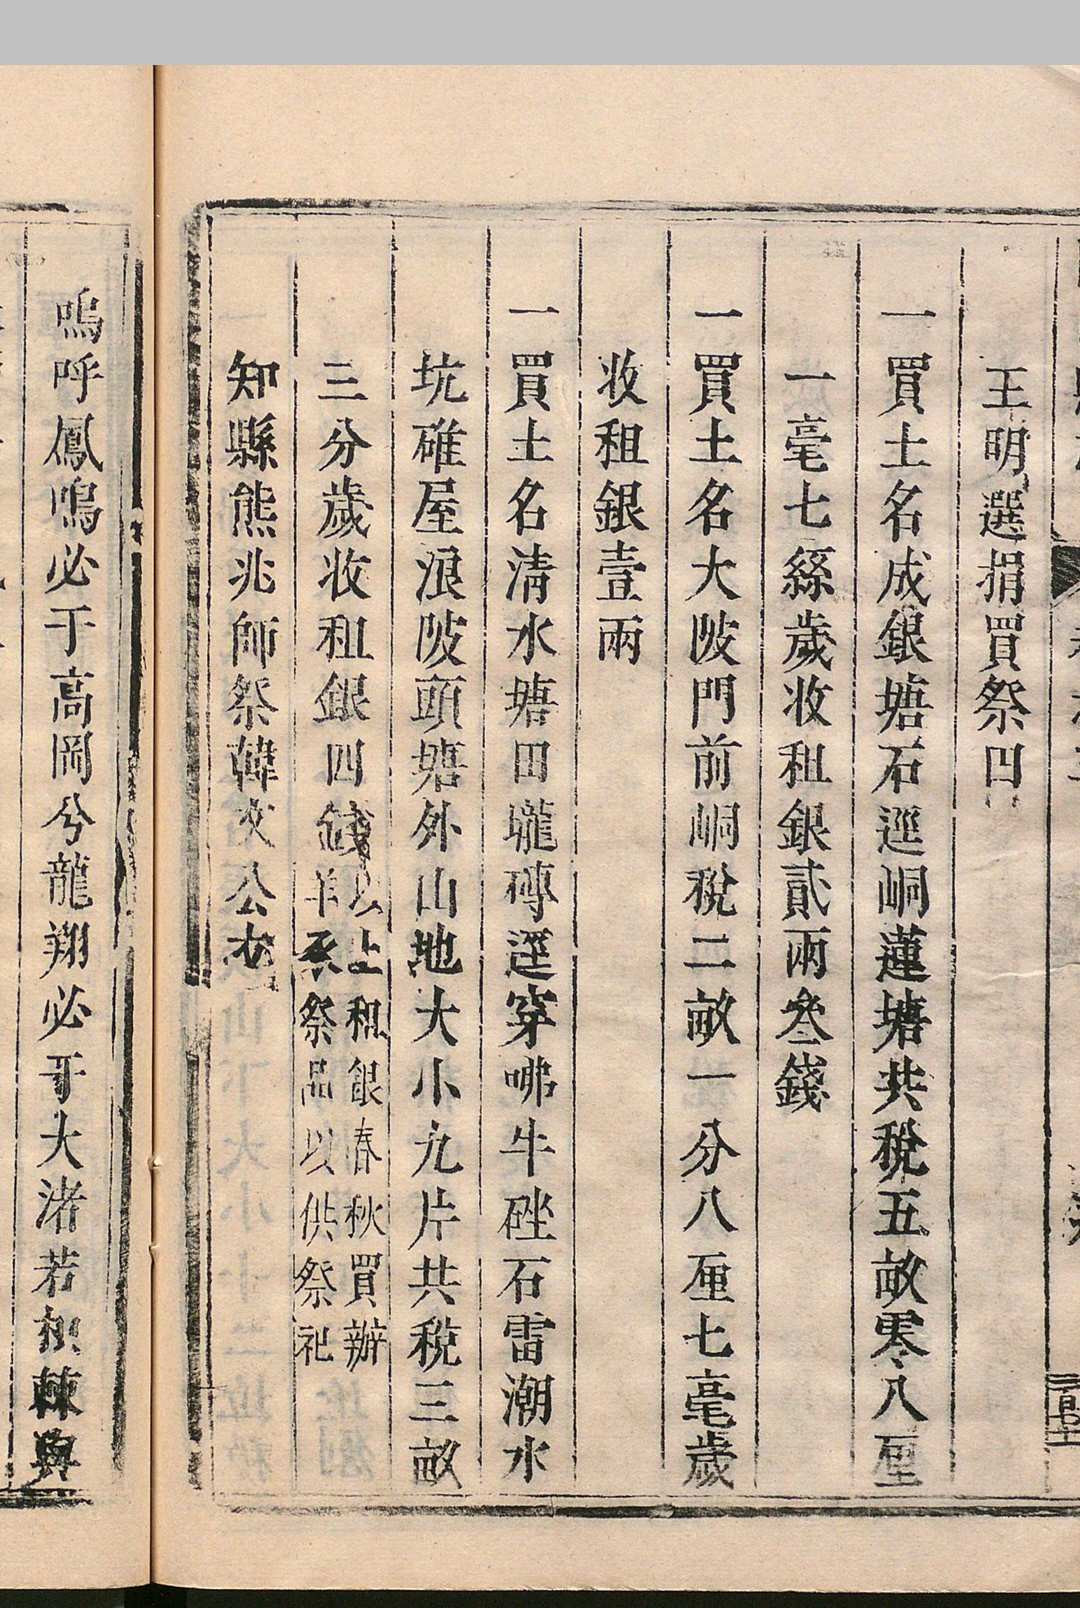 王明選捐買祭田
一買土名成銀塘石逕峒蓮塘共稅五畝零八厘
一毫七絲歲收租銀貳兩叄錢
一買土名大陂門前峒稅二畝一分八厘七毫歲
收租銀壹兩
一買土名清水塘田壠磚逕穿咈牛硂石雷潮水
坑碓屋浪陂頭塘外山地大小九片共稅三畝
三分歲收租銀四錢以上租銀春秋買辦
羊豕祭品以供祭祀
知縣熊兆師祭韓文公文
嗚呼鳳鳴必于高岡兮龍翔必于大渚若枳棘與